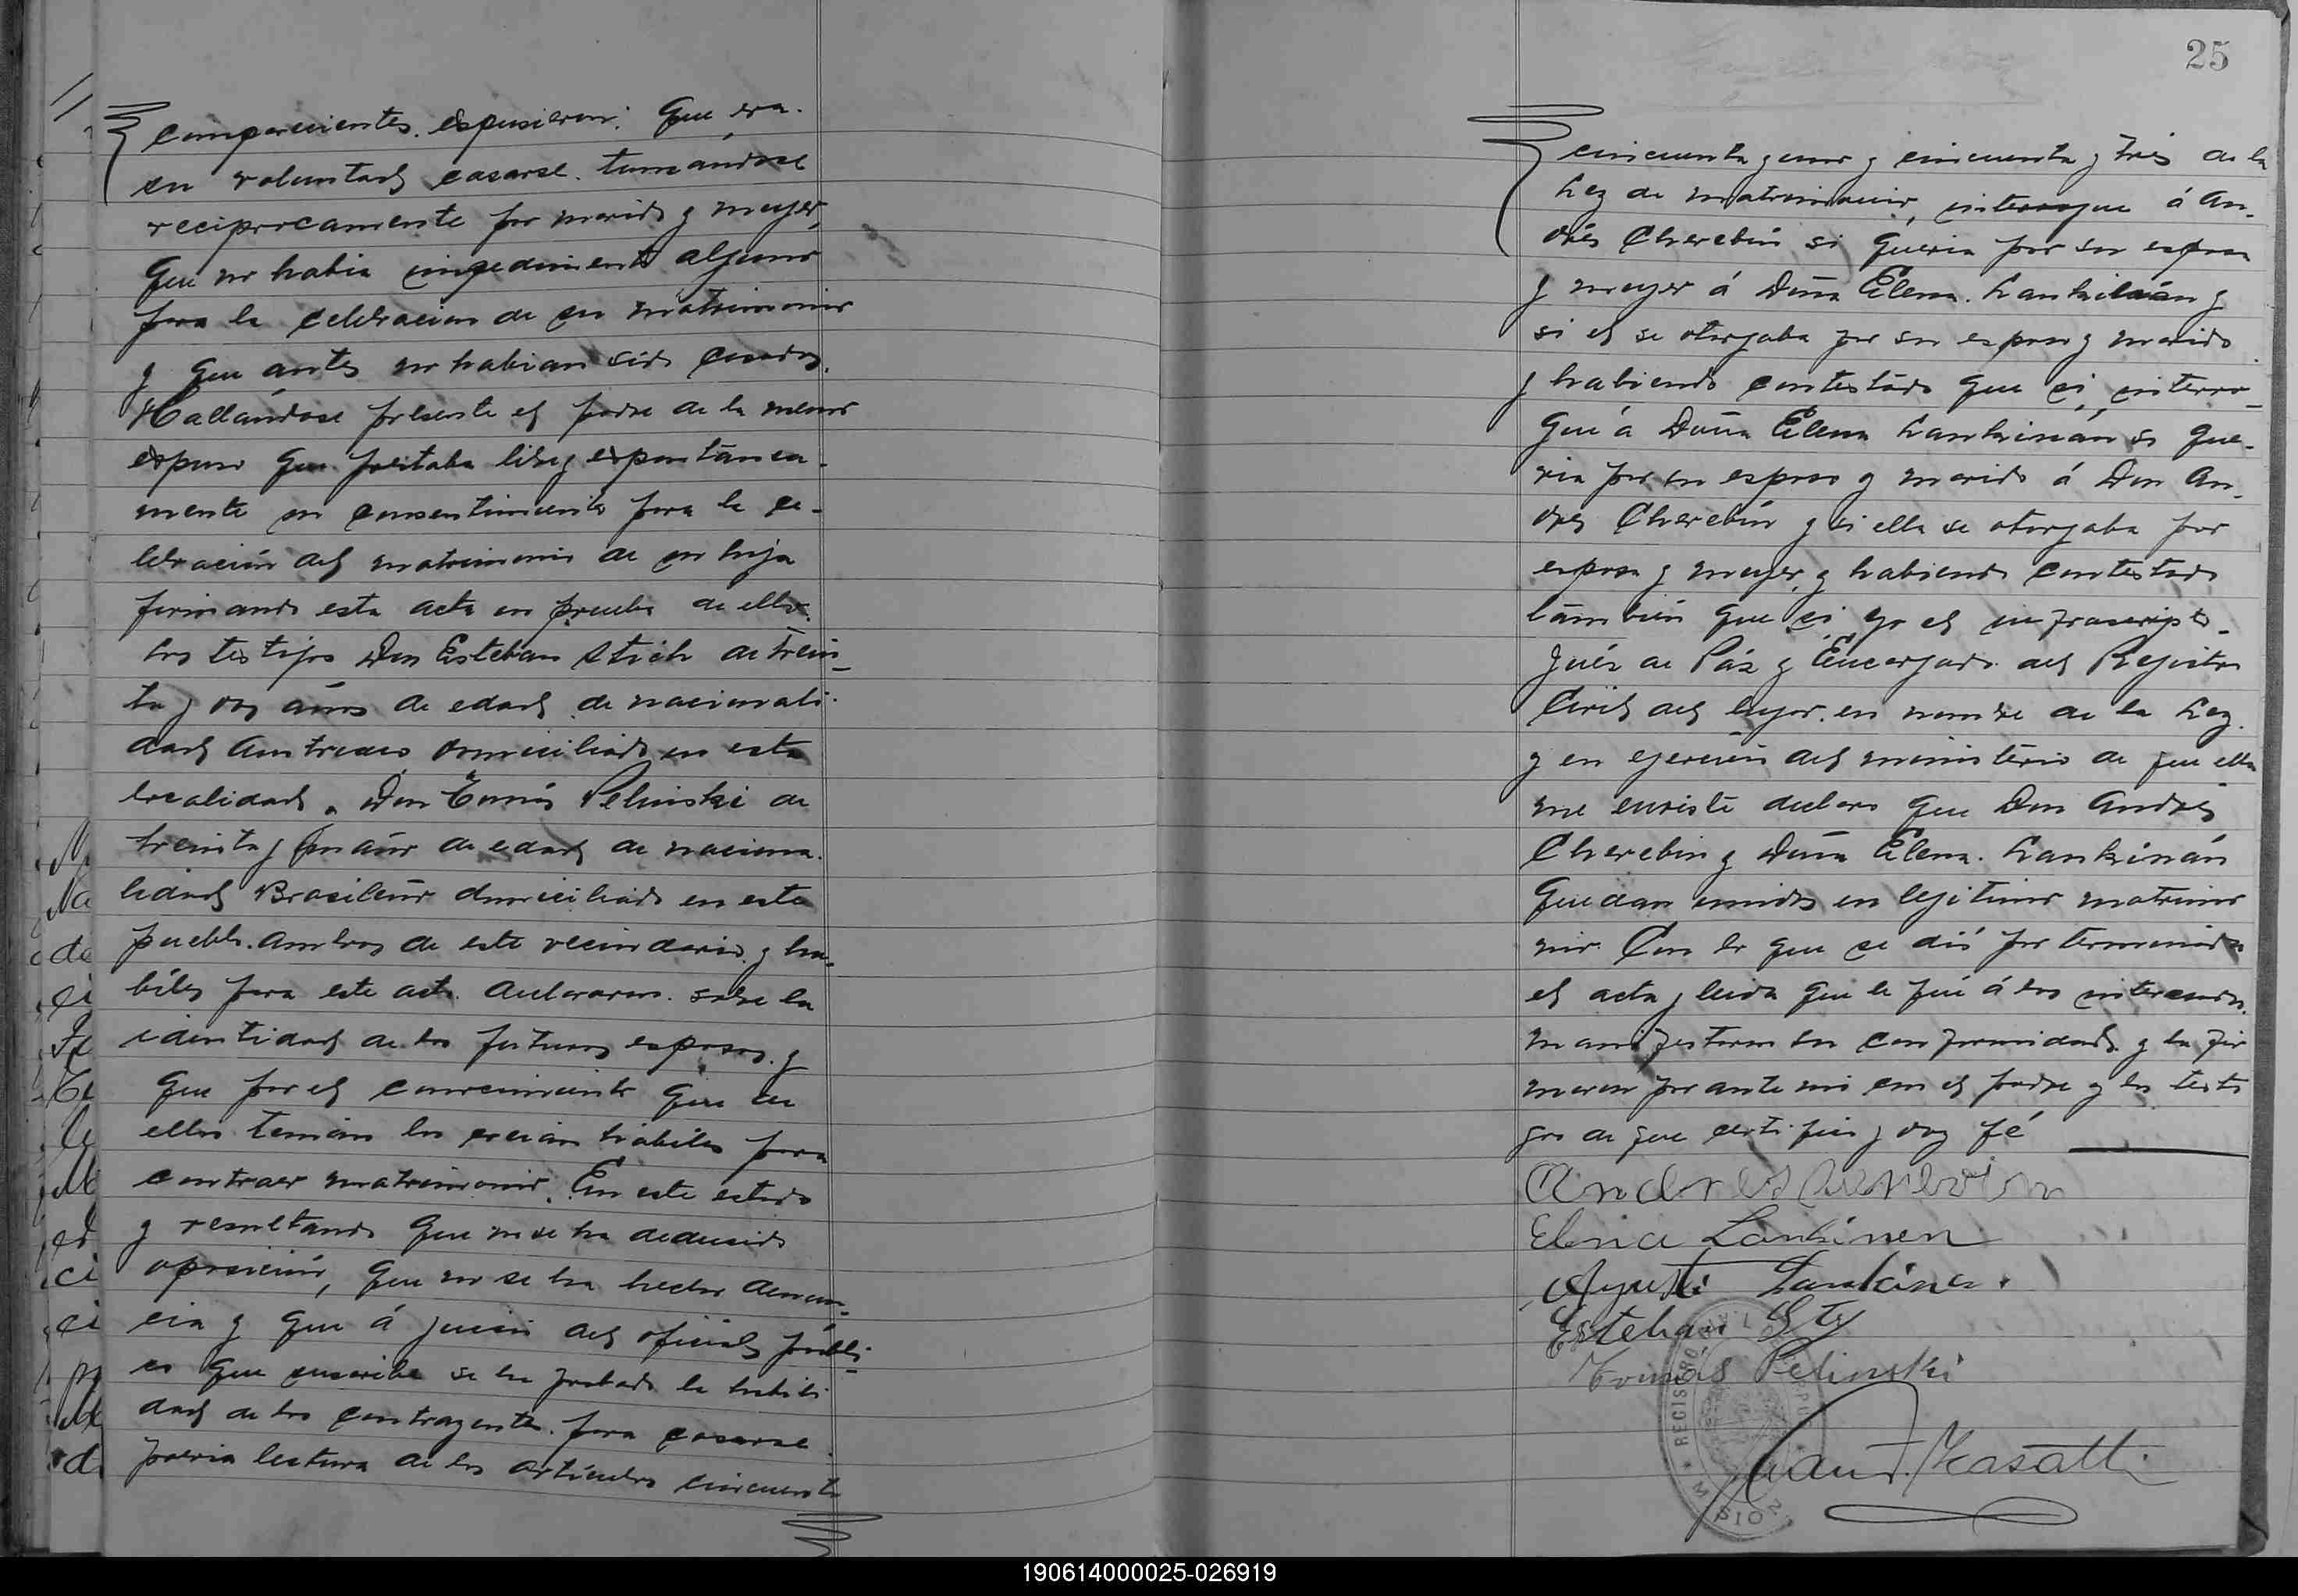 comparecientes. espusieron: Que era
su voluntad casarse. tomándose
reciprocamente por marido y mujer,
Que no habia impedimento alguno
para la celebracion de su matrimonio
y que antes no habian sido casados.
Hallándose presente el padre de la menor
expuso que prestaba libre y espontánea-
mente su consentimiento para la ce-
lebración del matrimonio de su hija
firmando esta acta en prueba de ello.
Los testigos Don Esteban Stich de trein-
ta y dos años de edad de nacionali-
dad Austriaco domiciliado en esta
localidad. Don Tomás Pelinski de
treinta y un año de edad de naciona-
lidad Brasileño domiciliado en este
pueblo. Ambos de este vecindario y há-
biles para este acto. declararon. sobre la
identidad de los futuros esposos. y
Que por el conocimiento que de
ellos tenian los creian hábiles para
contraer matrimonio. En este estado
y resultando que no se ha deducido
oposición, que no se ha hecho denun-
cia y que á juicio del oficial públi-
co que suscribe se ha probado la habili
dad de los contrayentes. para casarse.
previa lectura de los artículos cincuenta
25
cincuenta y uno y cincuenta y tres de la
Ley de matrimonio, interrogue á An-
drés Cherebin si queria por su esposa
y mujer á Doña Elena. Lankinán y
si el se otorgaba por su esposo y marido
y habiendo contestado que si, interro-
gué á Doña Elena Lankinán si que-
ria por su esposo y marido á Don An-
drés Cherebin y si ella se otorgaba por
esposa y mujer, y habiendo contestado
también que si yo el infrascripto
Juéz de Páz y Encargado del Registro
Civil del lugar. en nombre de la Ley.
y en ejercicio del ministerio de que ella
me enviste declaro que Don Andrés
Cherebin y Doña Elena. Lankinán
Quedan unidos en legitimo matrimo
nio. Con lo que se dió por terminada
el acta y leida que le fué á los interesados.
manifestaron su conformidad. y la fir
maron por ante mi con el padre y los testi
gos de que certifico y doy fé
Andres
Elena Lankinen
Agusti Lankinen.
Esteban Sty
Tomás Pelinski
Juan F. Kasatti
REGISTRO CIVIL
MISIONES
190614000025-026919